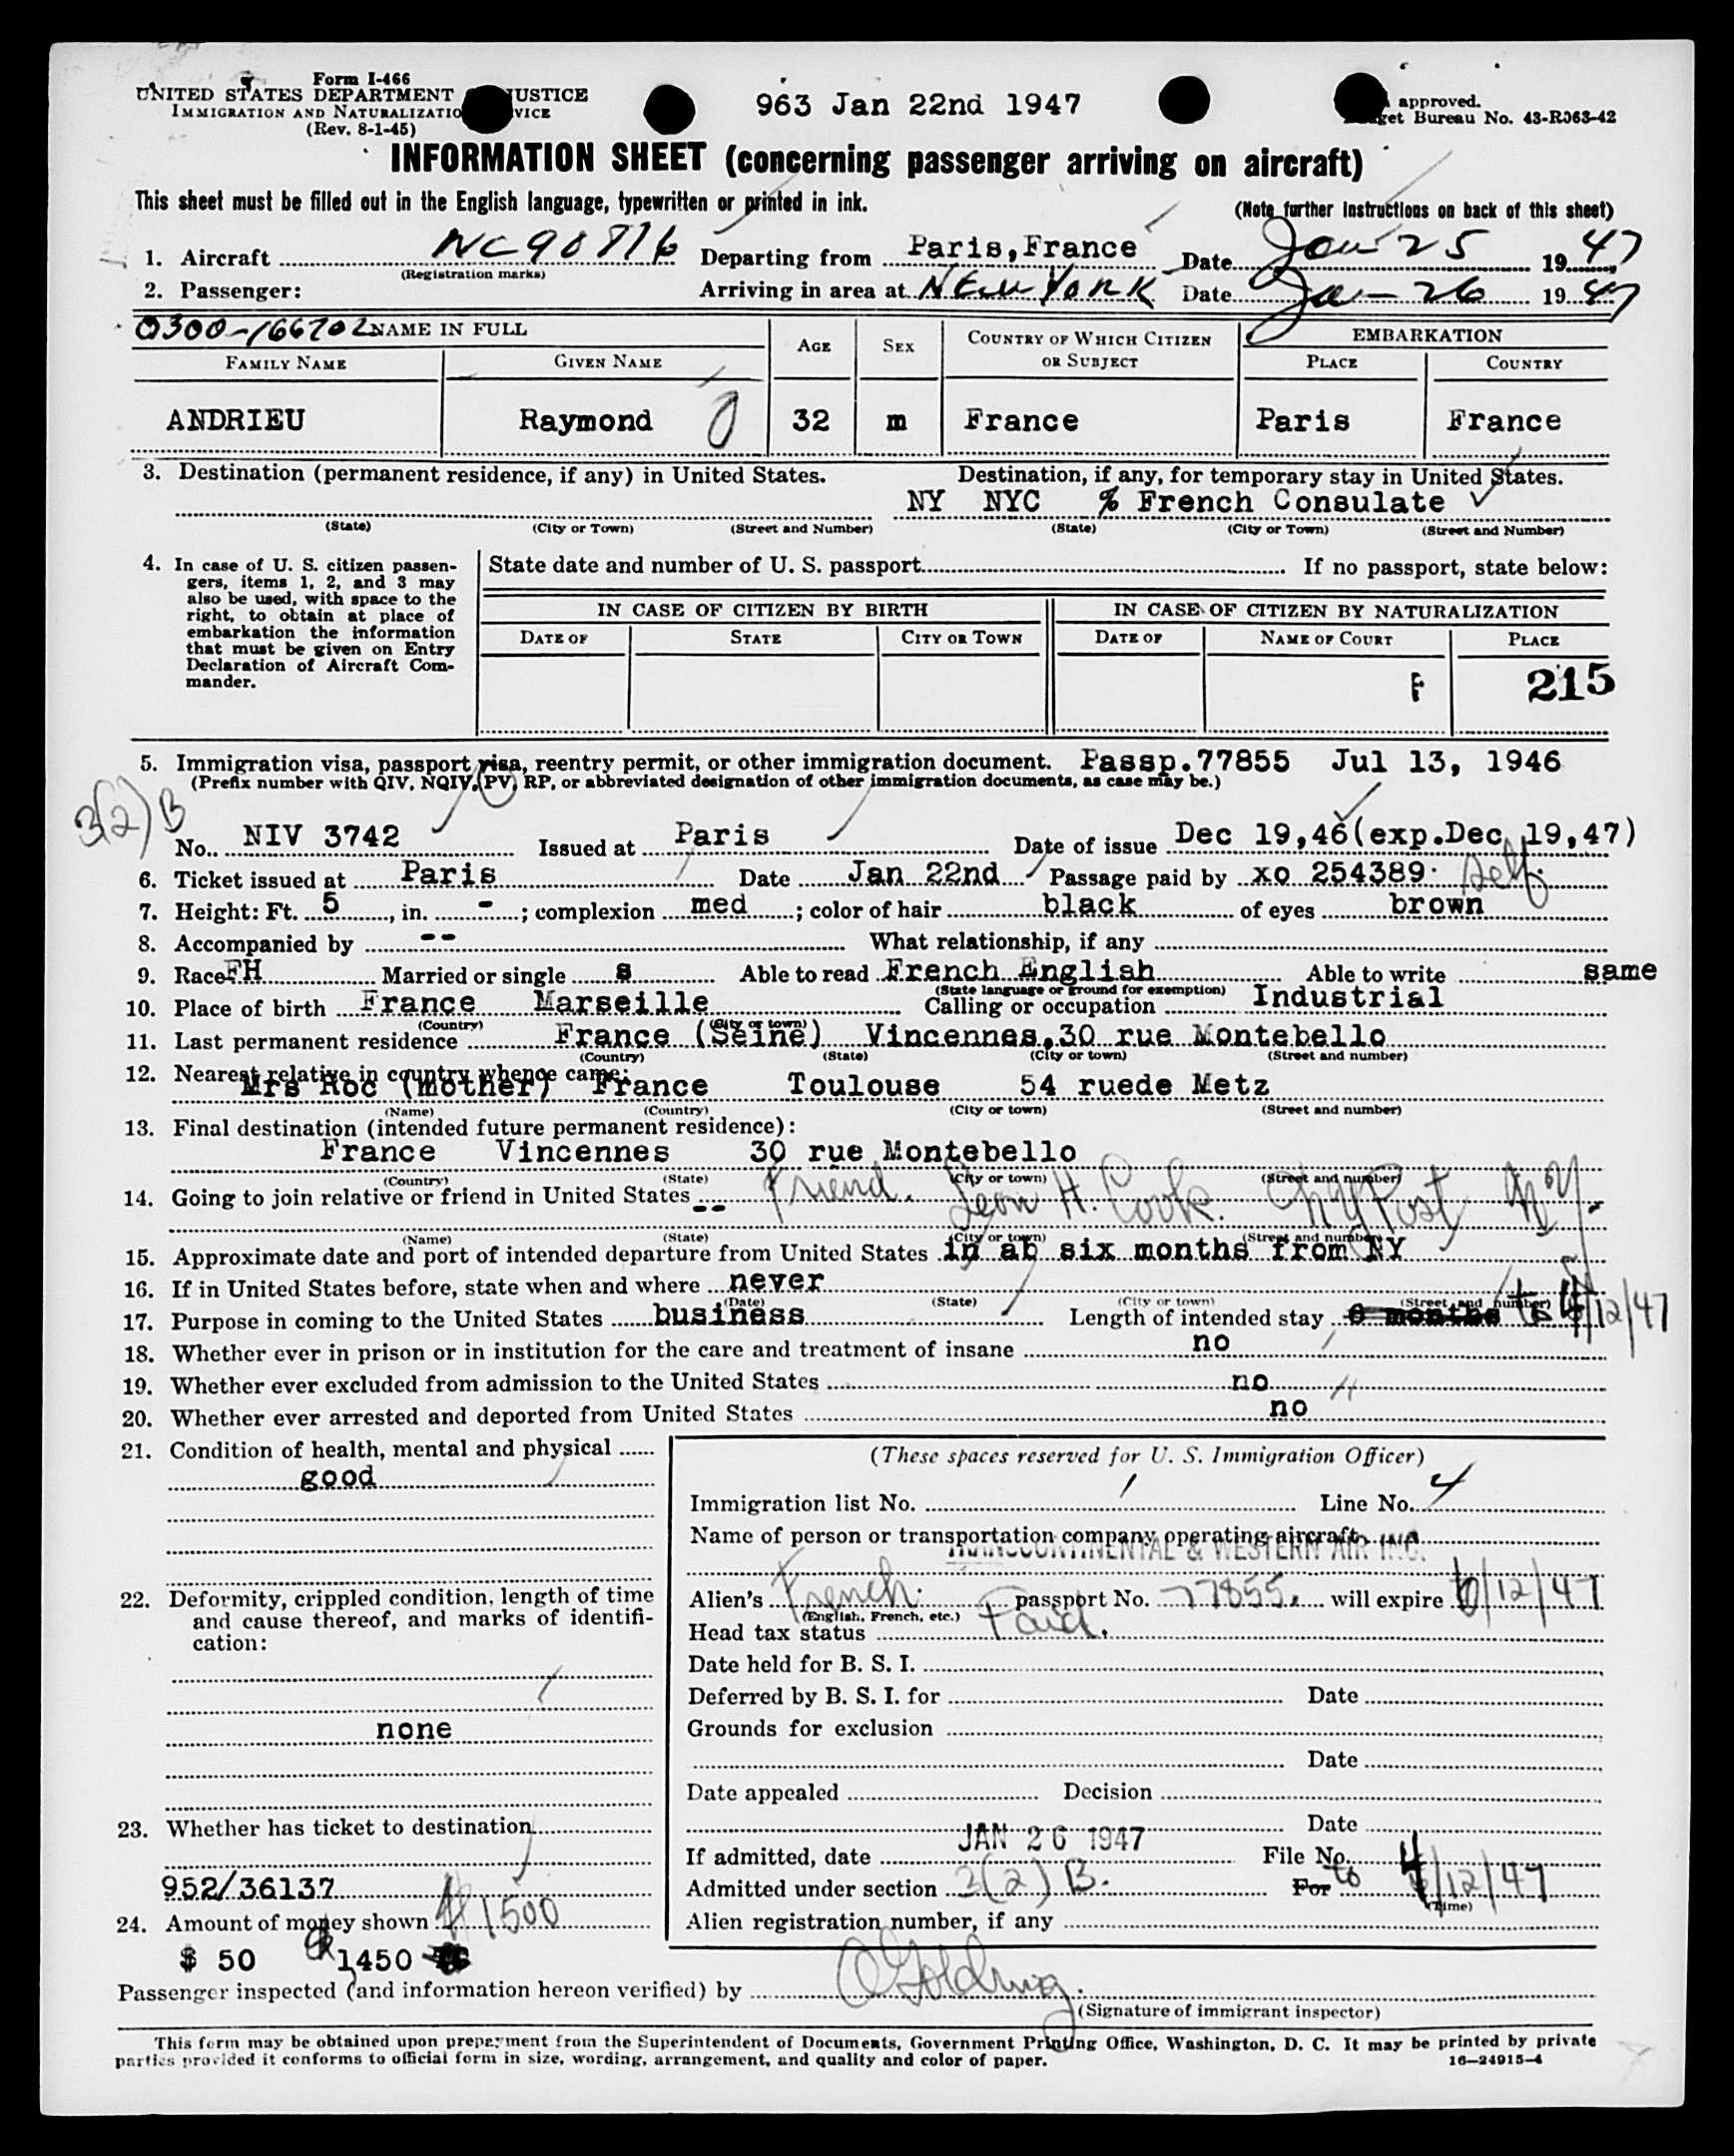 Form I-466
UNITED STATES DEPARTMENT USTICE
IMMIGRATION AND NATURALIZATIO VICE
(Rev. 8-1-45)
963 Jan 22nd 1947
approved.
get Bureau No. 43-R063-42
INFORMATION SHEET (concerning passenger arriving on aircraft)
This sheet must be filled out in the English language, typewritten or printed in ink.
(Note further instructions on back of this sheet)
1. Aircraft NC90816 Departing from Paris,France Date Jan 25 1947
(Registration marks)
2. Passenger: Arriving in area at NEW YORK Date Jan - 26 1947
0300-166702 NAME IN FULL
AGE SEX COUNTRY OF WHICH CITIZEN OR SUBJECT EMBARKATION
FAMILY NAME GIVEN NAME PLACE COUNTRY
ANDRIEU Raymond 32 m France Paris France
3. Destination (permanent residence, if any) in United States. Destination, if any, for temporary stay in United States.
NY NYC % French Consulate
(State) (City or Town) (Street and Number) (State) (City or Town) (Street and Number)
4. In case of U. S. citizen passen-
gers, items 1, 2, and 3 may
also be used, with space to the
right, to obtain at place of
embarkation the information
that must be given on Entry
Declaration of Aircraft Com-
mander.
State date and number of U. S. passport If no passport, state below:
IN CASE OF CITIZEN BY BIRTH IN CASE OF CITIZEN BY NATURALIZATION
DATE OF STATE CITY OR TOWN DATE OF NAME OF COURT PLACE
F 215
5. Immigration visa, passport visa, reentry permit, or other immigration document. Passp.77855 Jul 13, 1946
(Prefix number with QIV, NQIV, PV, RP, or abbreviated designation of other immigration documents, as case may be.)
3(2)B
No. NIV 3742 Issued at Paris Date of issue Dec 19,46(exp.Dec 19,47)
6. Ticket issued at Paris Date Jan 22nd Passage paid by xo 254389 Self
7. Height: Ft. 5, in. -; complexion med; color of hair black of eyes brown
8. Accompanied by -- What relationship, if any
9. Race FH Married or single s Able to read French English Able to write same
(State language or ground for exemption)
10. Place of birth France Marseille Calling or occupation Industrial
(Country) (City or town)
11. Last permanent residence France (Seine) Vincennes,30 rue Montebello
(Country) (State) (City or town) (Street and number)
12. Nearest relative in country whence came:
Mrs Roc (mother) France Toulouse 54 ruede Metz
(Name) (Country) (City or town) (Street and number)
13. Final destination (intended future permanent residence):
France Vincennes 30 rue Montebello
(Country) (State) (City or town) (Street and number)
14. Going to join relative or friend in United States -- Friend. Leon H. Cook. NY Post NY.
(Name) (State) (City or town) (Street and number)
15. Approximate date and port of intended departure from United States in ab six months from NY
16. If in United States before, state when and where never
(Date) (State) (City or town) (Street and number)
17. Purpose in coming to the United States business Length of intended stay 6 months to 4/12/47
18. Whether ever in prison or in institution for the care and treatment of insane no
19. Whether ever excluded from admission to the United States no
20. Whether ever arrested and deported from United States no
21. Condition of health, mental and physical
good
22. Deformity, crippled condition, length of time
and cause thereof, and marks of identifi-
cation:
none
23. Whether has ticket to destination
952/36137
24. Amount of money shown $1500
$ 50 1450
(These spaces reserved for U. S. Immigration Officer)
Immigration list No. 1 Line No. 4
Name of person or transportation company operating aircraft
TRANSCONTINENTAL & WESTERN AIR INC.
Alien's French passport No. 77855. will expire 6/12/47
(English, French, etc.)
Head tax status Paid.
Date held for B. S. I.
Deferred by B. S. I. for Date
Grounds for exclusion
Date
Date appealed Decision
Date
If admitted, date JAN 26 1947 File No.
Admitted under section 3(2)B. For to 4/12/47
(Time)
Alien registration number, if any
Passenger inspected (and information hereon verified) by O Golding
(Signature of immigrant inspector)
This form may be obtained upon prepayment from the Superintendent of Documents, Government Printing Office, Washington, D. C. It may be printed by private
parties provided it conforms to official form in size, wording, arrangement, and quality and color of paper. 16—24915-4